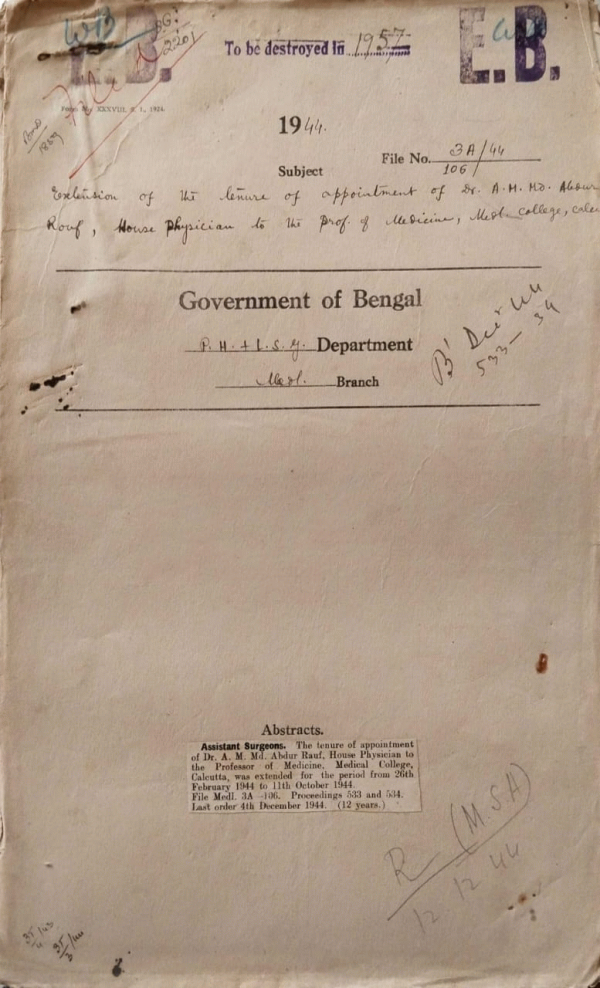 WB
E.B.
File
To be destroyed in 1957
E.B.
Form No. XXXVIII, S. 1., 1924.
1944.
File No. 3A/44
106/
Subject
Extension of the tenure of appointment of Dr. A. M. Md. Abdur
Rouf, House Physician to the Prof. of Medicine, Medl. College, Calcu
Government of Bengal
P. H. & L. S. G. Department
Medl. Branch
B' Decr 44
533-34
Abstracts.
Assistant Surgeons. The tenure of appointment
of Dr. A. M. Md. Abdur Rauf, House Physician to
the Professor of Medicine, Medical College,
Calcutta, was extended for the period from 26th
February 1944 to 11th October 1944.
File Medl. 3A-106. Proceedings 533 and 534.
Last order 4th December 1944. (12 years.)
R (M.SA)
12 12 44